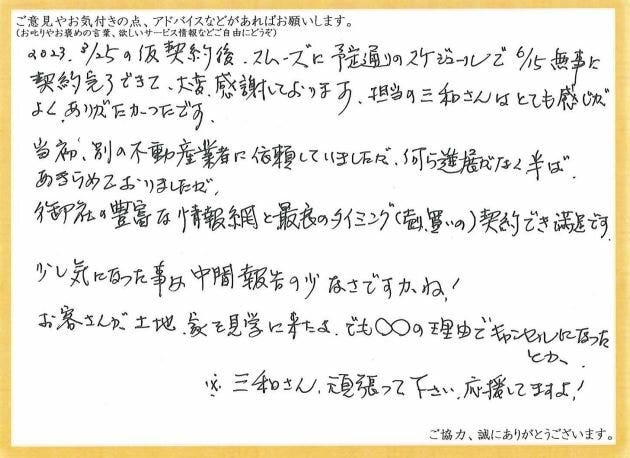 ご意見やお気付きの点、アドバイスなどがあればお願いします。
(お叱りやお褒めの言葉、欲しいサービス情報などご自由にどうぞ)
2023. 8/25の仮契約後、スムーズに予定通りのスケジュールで 6/15 無事に
契約完了できて、大変感謝しております、担当の三和さんはとても感じが
よくありがたかったです.
当初、別の不動産業者に依頼していましたが、何ら進展がなく半ば
あきらめておりましたが、
御社の豊富な情報網と最良のタイミング(売り買いの)契約でき満足です
少し気になった事は中間報告の少なさですかね!
お客さんが土地、家を見学に来たよ、でも〇〇の理由でキャンセルになった
とか、
※ 三和さん、頑張って下さい、応援してますよ!
ご協力、誠にありがとうございます。